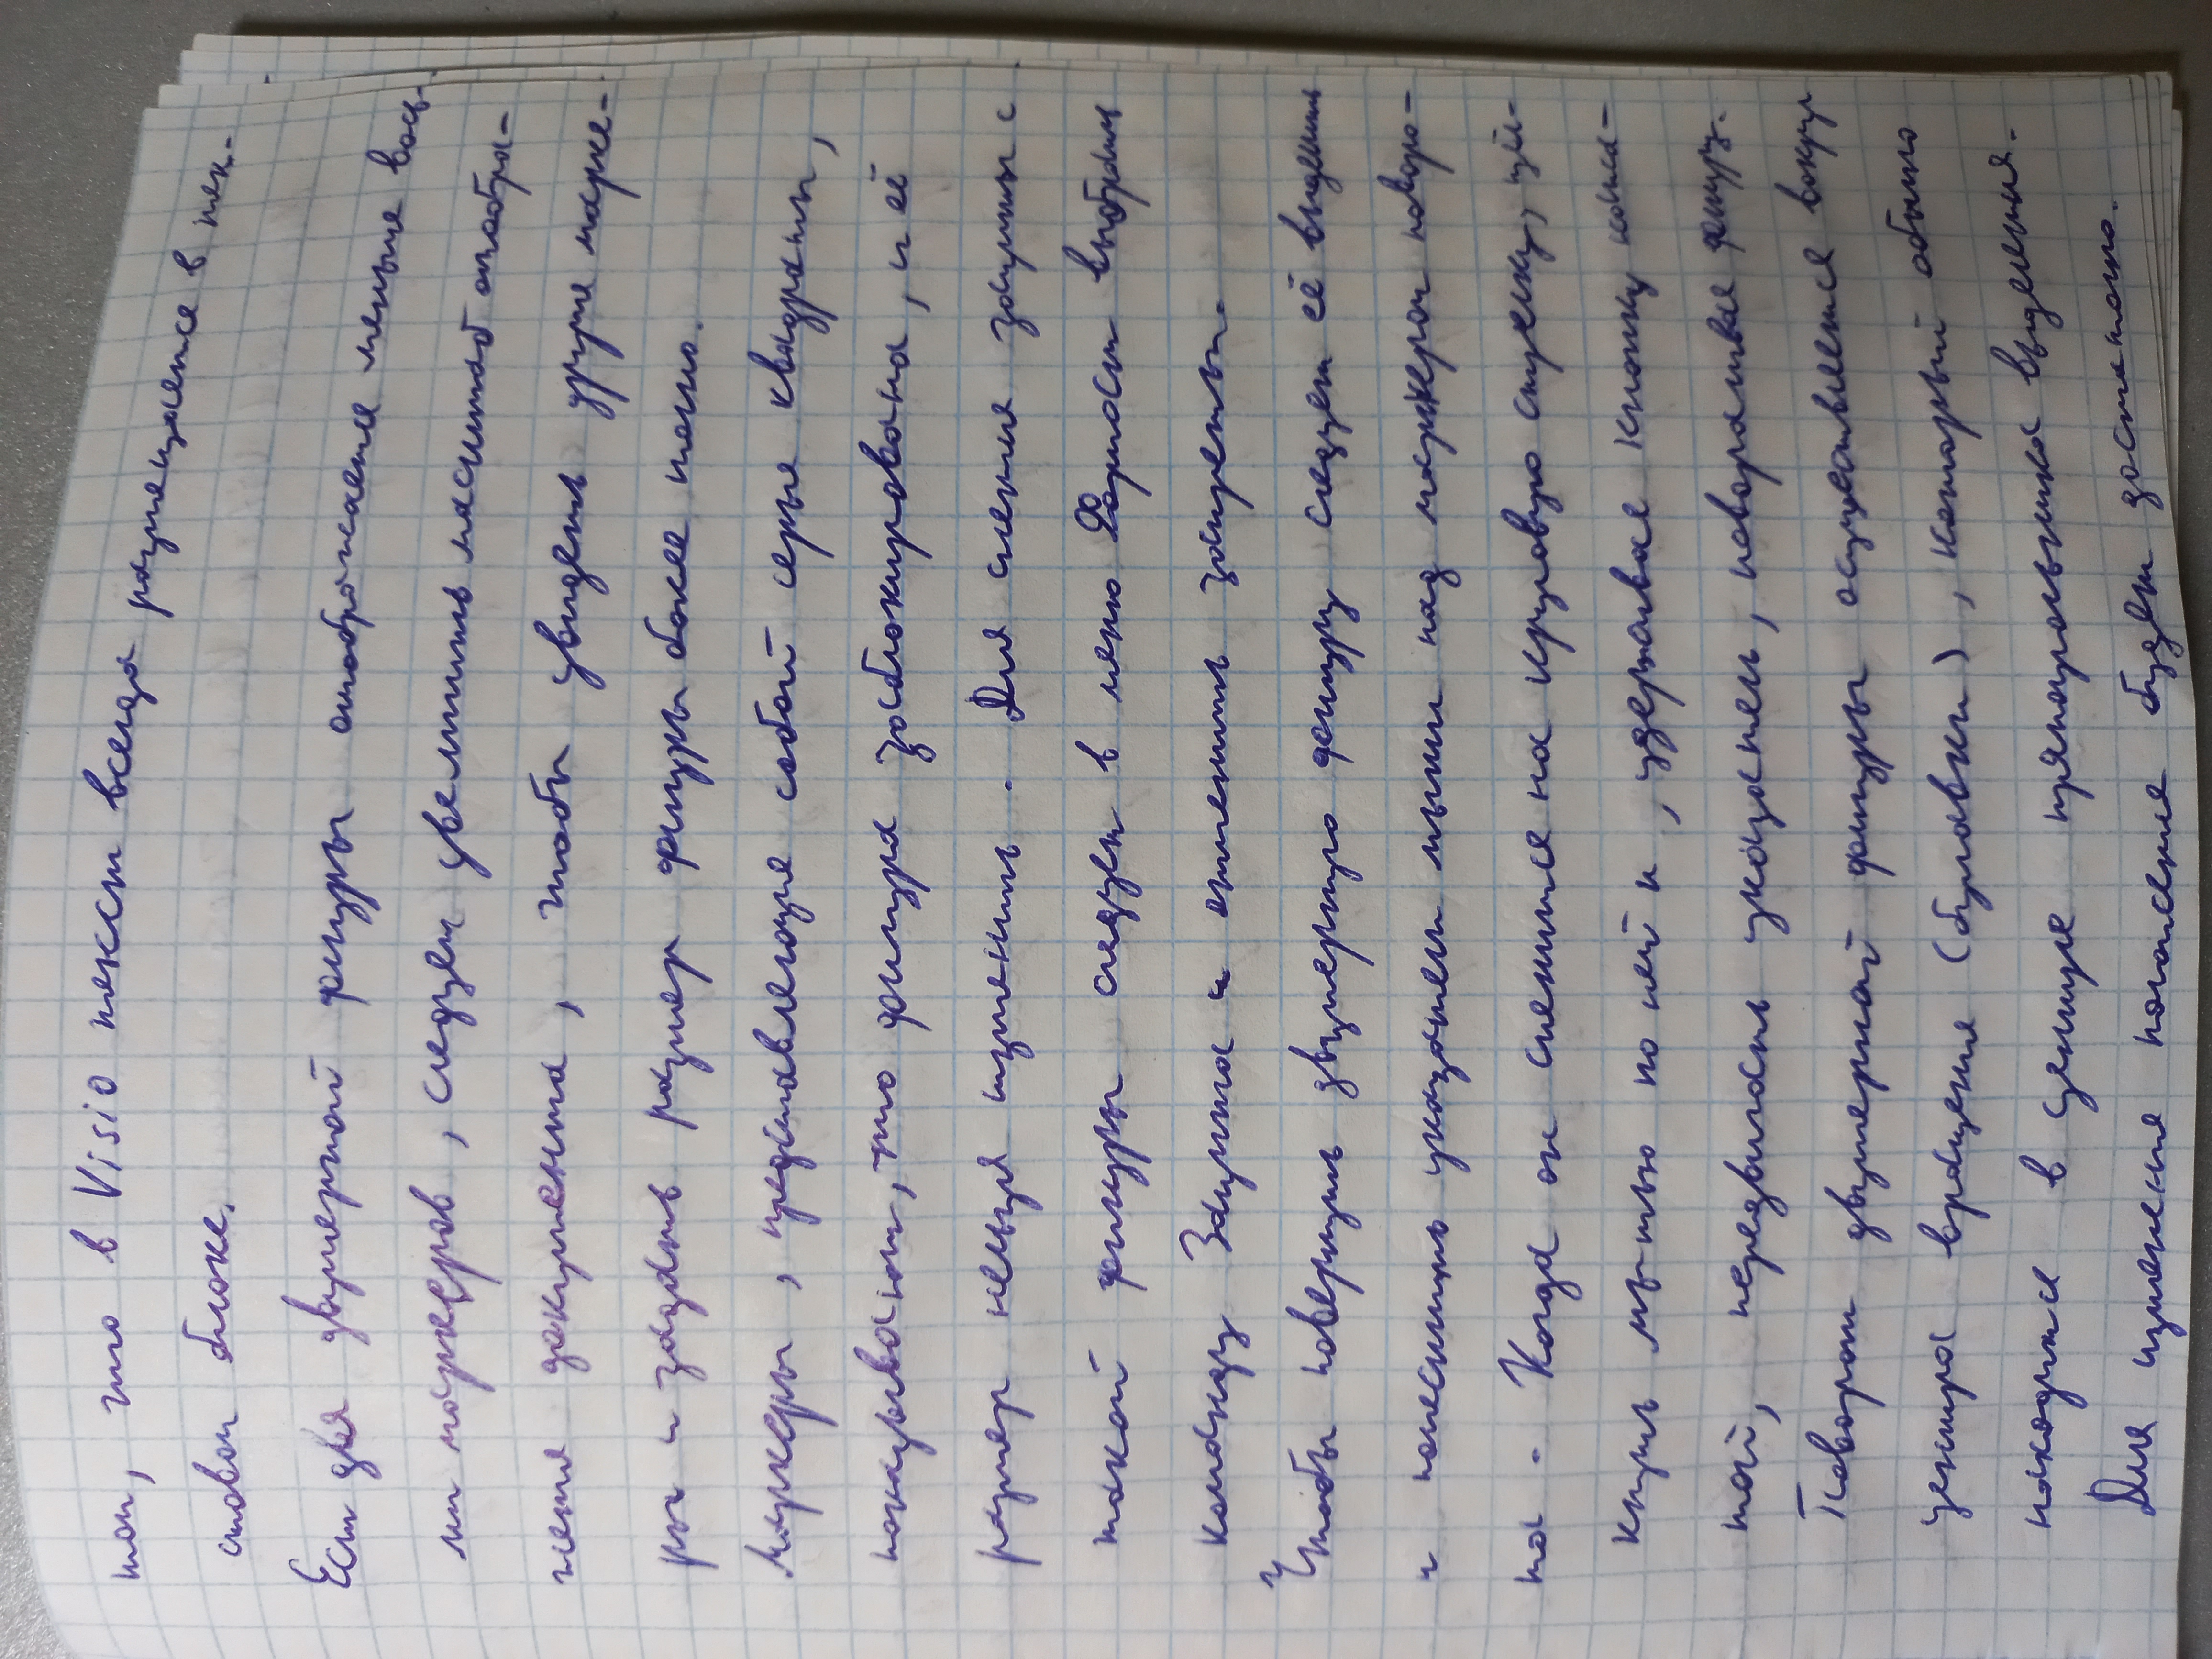 том, что в Visio текст всегда размещается в тек-
стовом блоке.
Если для двумерной фигуры отображается меньше вось-
ми маркеров, следует увеличить масштаб отобра-
жения документа, чтобы увидеть другие марке-
ры и задать размер фигуры более точно.
Маркеры, представляющие собой серые квадраты,
показывают, что фигура заблокирована, и её
размер нельзя изменить. Для снятия защиты с
такой фигуры следует в меню Формат выбрать
команду Защита и отменить запреты.
Чтобы повернуть двумерную фигуру следует её выделить
и поместить указатель мыши над маркером поворо-
та. Когда он сменится на круговую стрелку, щёл-
кнуть мышью по ней и, удерживая кнопку нажа-
той, передвигать указатель, поворачивая фигуру.
Поворот двумерной фигуры осуществляется вокруг
центра вращения (булавки), который обычно
находится в центре прямоугольника выделения.
Для изменения положения будет достаточно.